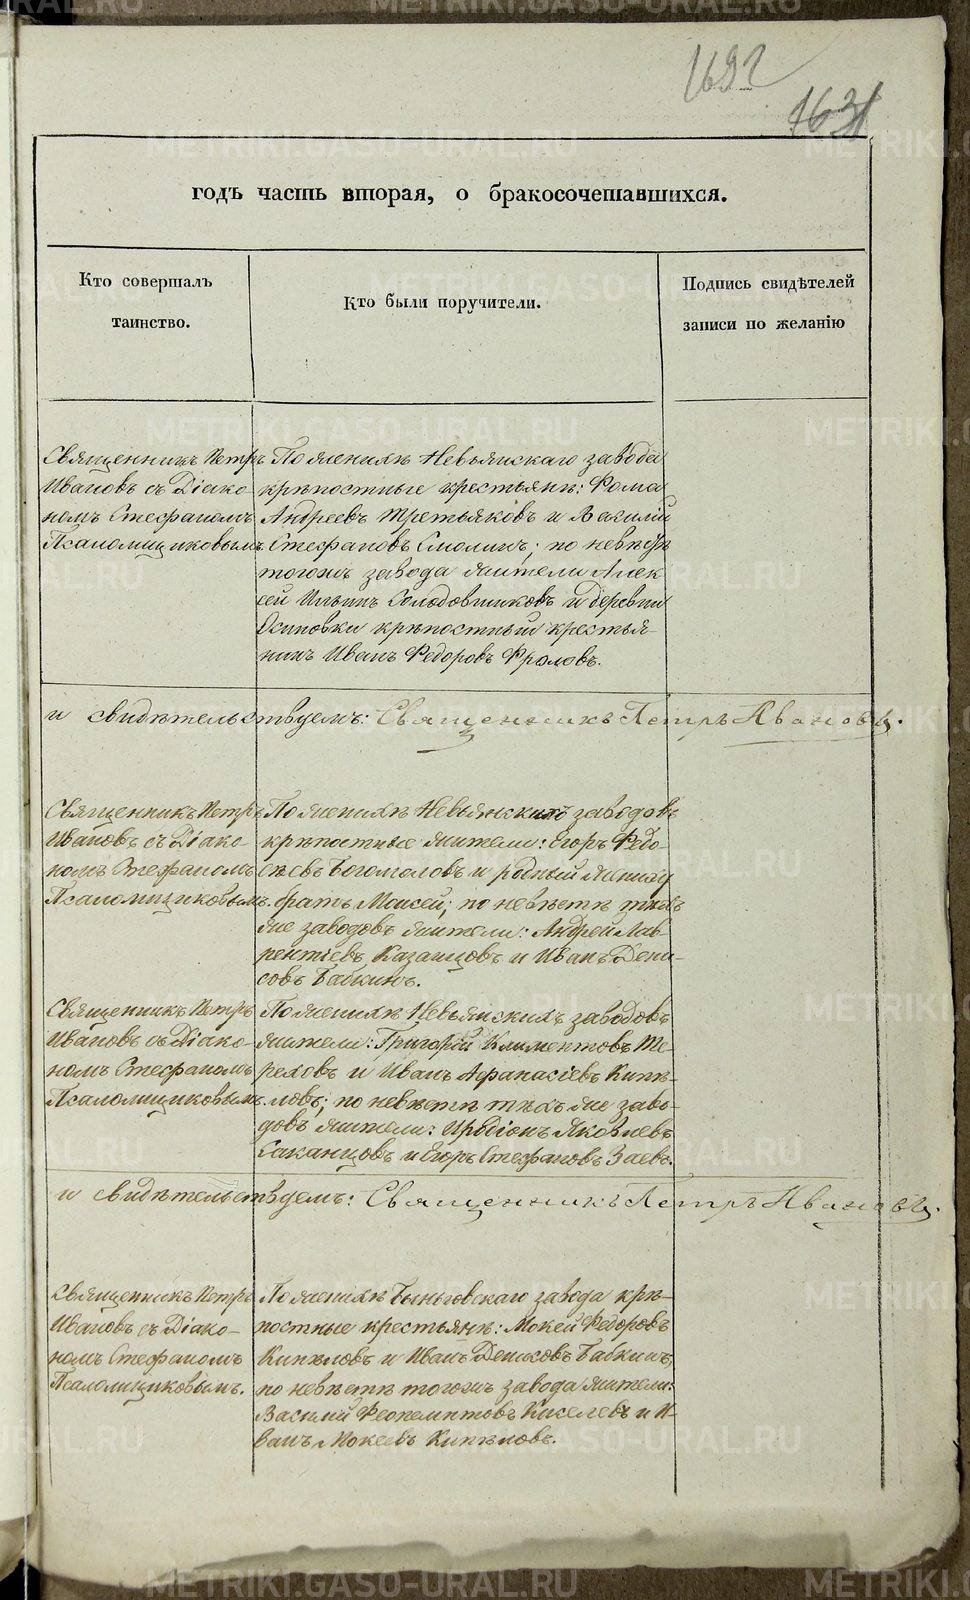 1631
годъ часть вторая, о бракосочетавшихся.
Кто совершалъ
таинство.
Кто были поручители.
Подпись свидѣтелей
записи по желанію
Священникъ Петръ
Ивановъ съ Діако-
номъ Стефаномъ
Псаломщиковымъ.
По женихѣ Невьянскаго завода
крѣпостные крестьяне: Фома
Андреевъ Третьяковъ и Василій
Стефановъ Смолинъ; по невѣстѣ
тогожъ завода жители Алек
сей Ильинъ Солодовниковъ и деревни
Осиновки крѣпостный крестья-
нинъ Иванъ Федоровъ Фроловъ.
и свидѣтельствуемъ: Священникъ Петръ Ивановъ.
Священникъ Петръ
Ивановъ съ Діако-
номъ Стефаномъ
Псаломщиковымъ.
По женихѣ Невьянскихъ заводовъ
крѣпостные жители: Егоръ Федо-
сѣевъ Богомоловъ и родный жениху
братъ Моисей; по невѣстѣ тѣхъ
же заводовъ жители: Андрей Лав-
рентіевъ Казанцовъ и Иванъ Дени-
совъ Бабкинъ.
Священникъ Петръ
Ивановъ съ Діако-
номъ Стефаномъ
Псаломщиковымъ.
По женихѣ Невьянскихъ заводовъ
жители: Григорій Климентовъ Те-
реховъ и Иванъ Афанасіевъ Кипѣ-
ловъ; по невѣстѣ тѣхъ же заво-
довъ жители: Иродіонъ Яковлевъ
Саканцовъ и Егоръ Стефановъ Заевъ.
и свидѣтельствуемъ: Священникъ Петръ Ивановъ.
Священникъ Петръ
Ивановъ съ Діако-
номъ Стефаномъ
Псаломщиковымъ.
По женихѣ Быньговскаго завода крѣ-
постные крестьяне: Мокей Федоровъ
Кипѣловъ и Иванъ Денисовъ Бабкинъ,
по невѣстѣ тогожъ завода жители:
Василій Феопемптовъ Киселевъ и И-
ванъ Мокеевъ Кипѣловъ.
METRIKI.GASO-URAL.RU